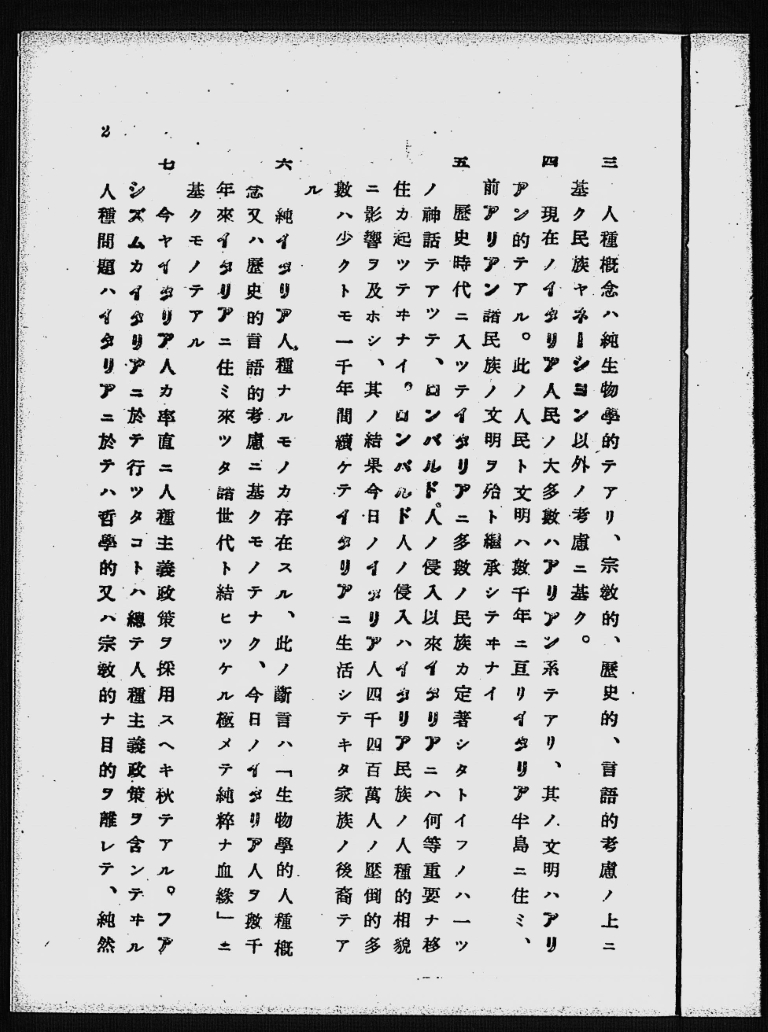 三　人種概念ハ純生物學的テアリ、宗敎的、歷史的、言語的考慮ノ上ニ
基ク民族ヤネーシヨン以外ノ考慮ニ基ク。
四　現在ノイタリア人民ノ大多數ハアリアン系テアリ、其ノ文明ハアリ
アン的テアル。此ノ人民ト文明ハ數千年ニ亘リイタリア半島ニ住ミ、
前アリアン諸民族ノ文明ヲ殆ト繼承シテヰナイ
五　歷史時代ニ入ツテイタリアニ多數ノ民族カ定著シタトイフノハ一ツ
ノ神話テアツテ、ロンバルド人ノ侵入以來イタリアニハ何等重要ナ移
住カ起ツテヰナイ。ロンバルド人ノ侵入ハイタリア民族ノ人種的相貌
ニ影響ヲ及ホシ、其ノ結果今日ノイタリア人四千四百萬人ノ壓倒的多
數ハ少クトモ一千年間續ケテイタリアニ生活シテキタ家族ノ後裔テア
ル
六　純イタリア人種ナルモノカ存在スル、此ノ斷言ハ「生物學的人種槪
念又ハ歷史的言語的考慮ニ基クモノテナク、今日ノイタリア人ヲ數千
年來イタリアニ住ミ來ツタ諸世代ト結ヒツケル極メテ純粹ナ血緣」ニ
基クモノテアル
七　今ヤイタリア人カ率直ニ人種主義政策ヲ採用スヘキ秋テアル。フア
シズムカイタリアニ於テ行ツタコトハ總テ人種主義政策ヲ含ンテヰル
人種問題ハイタリアニ於テハ哲學的又ハ宗敎的ナ目的ヲ離レテ、純然
2